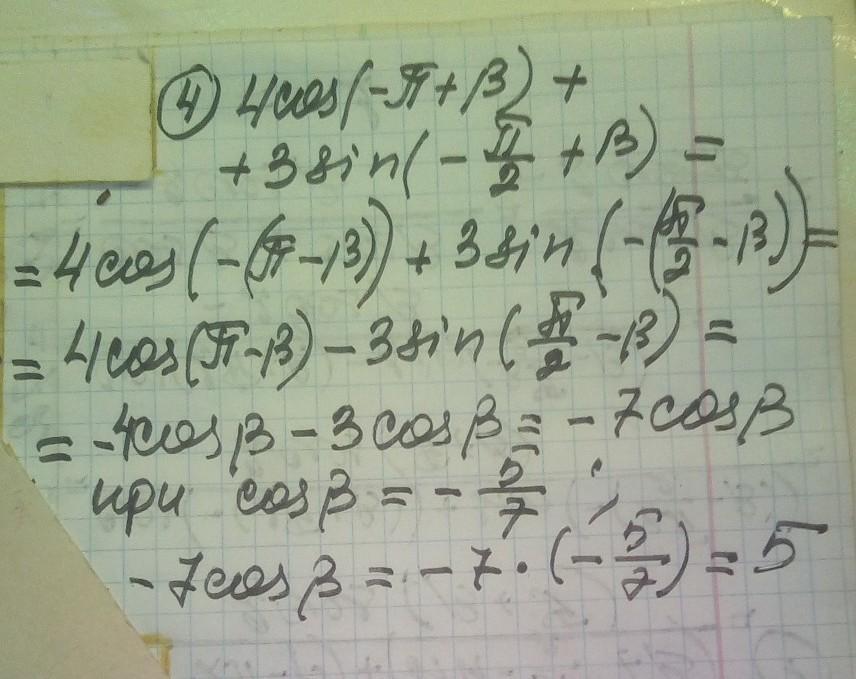 ④ 4cos(-π+β) +
+ 3sin(-π/2 + β) =
= 4cos(-(π-β)) + 3sin(-(π/2 - β)) =
= 4cos(π-β) - 3sin(π/2 - β) =
= -4cosβ - 3cosβ = -7cosβ
при cosβ = -5/7 ;
-7cosβ = -7·(-5/7) = 5